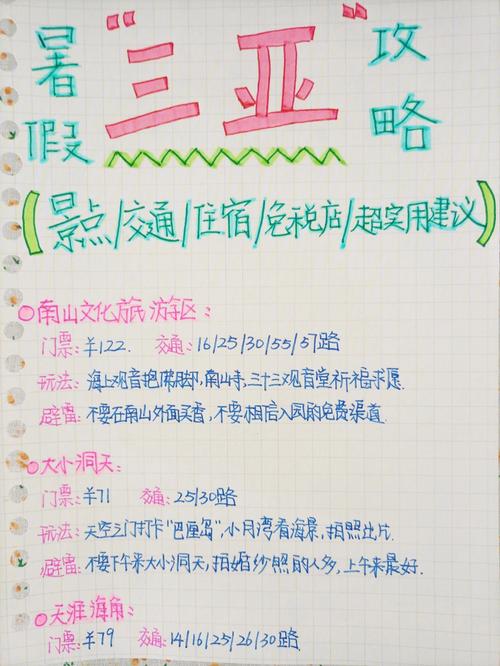 暑假"三亚"攻略
(景点/交通/住宿/免税店/超实用建议)
南山文化旅游区:
门票:¥122. 交通:16/25/30/55/57路
玩法:海上观音抱佛脚,南山寺,三十三观音堂祈福求愿.
避雷:不要在南山外面买香,不要相信入园的免费渠道.
大小洞天:
门票:¥71 交通:25/30路
玩法:天空之门打卡"巴厘岛",小月湾看海景,拍照出片.
避雷:不要下午来大小洞天,拍婚纱照的人多,上午来最好.
天涯海角:
门票:¥79 交通:14/16/25/26/30路.